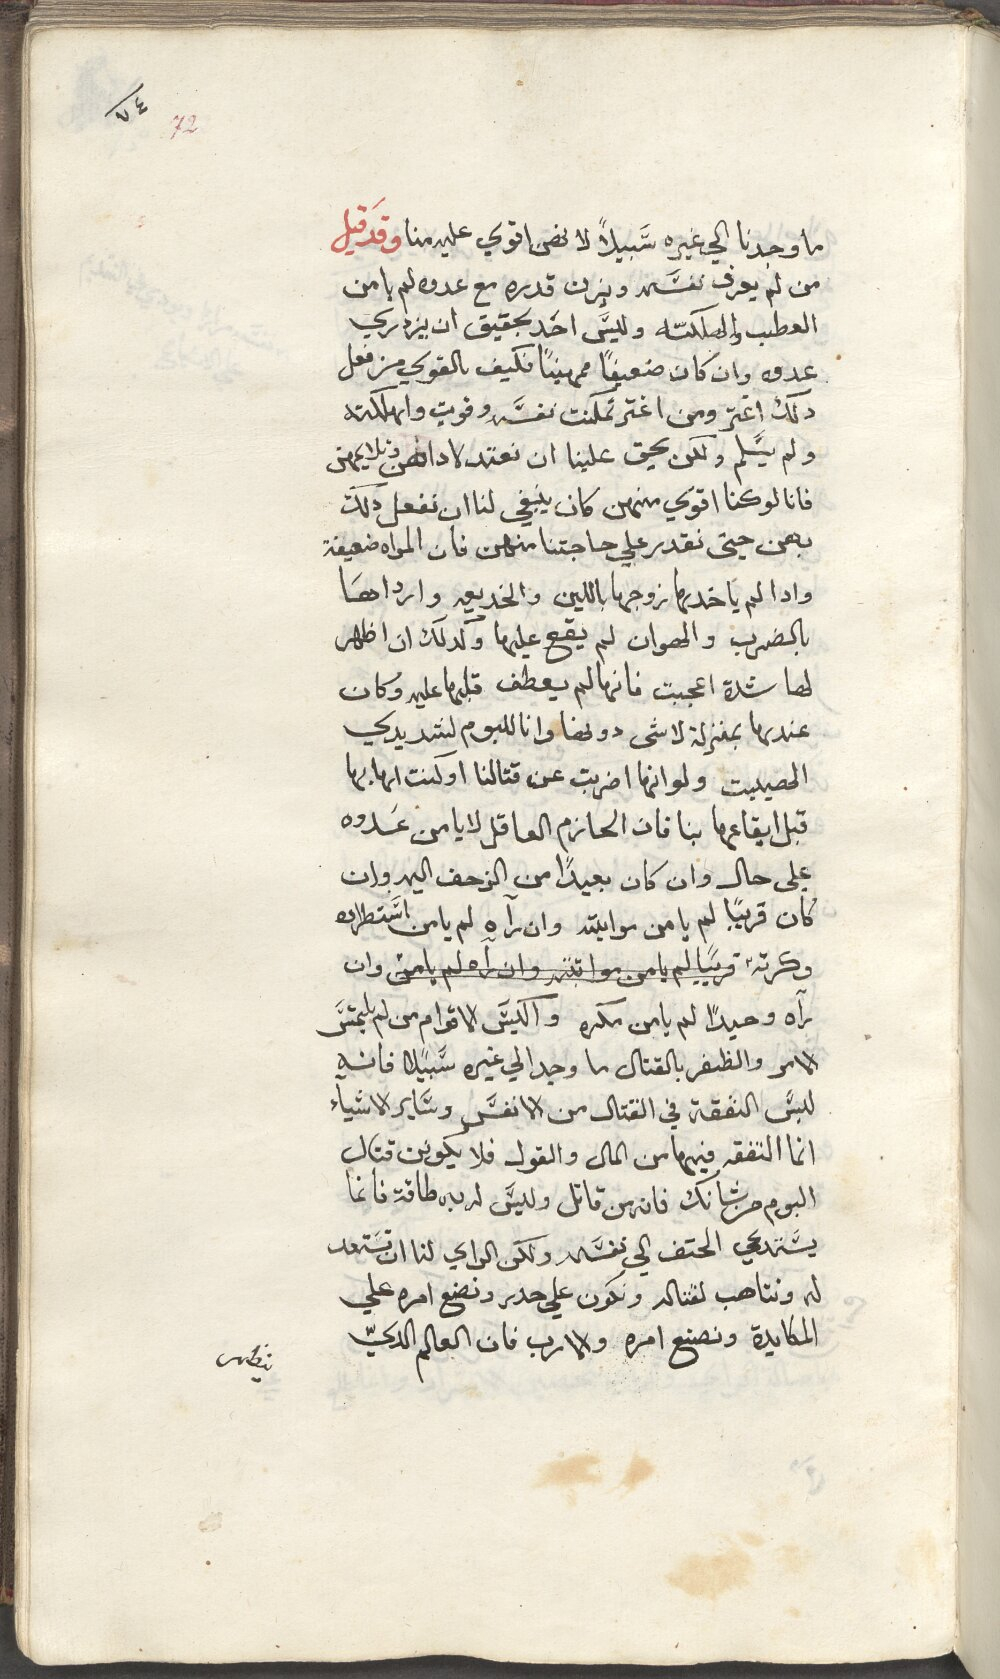 ٧٤
72
ما وجدنا الي غيره سبيلاً لانهن اقوي عليه منا وقد قيل
من لم يعرف نفسه ويزن قدره مع عدوه لم يامن
العطب والهلكته وليس احد بحقيق ان يزدري
عدوه وان كان ضعيفاً مهيناً فكيف بالقوي من فعل
دلك اغتر ومن اغتر تمكنت نفسه وقويت واهلكته
ولم يسلم ولكن يحق علينا ان نعتد
فانا لو كنا اقوي منهن كان ينبغي لنا ان نفعل دلك
بهن حتي نقدر علي حاجتنا منهن فان المراه ضعيفة
وادا لم ياخدها زوجها باللين والخديعه وارداها
بالضرب والهوان لم يقع عليها وكدلك ان اظهر
لها شدة اعجبت فانها لم يعطف قلبها عليه وكان
عندها بمنزلة لا شي دونها وانا للبوم لشديدي
الهيبت ولو انها اضربت عن قتالنا او كنت اهابها
قبل ايقاعها بنا فان الحازم العاقل لا يامن عدوه
علي حال وان كان بعيداً من الزحف اليه وان
كان قريباً لم يامن مواثبته وان رآه لم يامن استطراده
وكرته قريباً لم يامن مواثبته وان رآه لم يامن وان
رآه وحيداً لم يامن مكره واكيس الاقوام من لم يلتمس
الامر والظفر بالقتال ما وجد الي غيره سبيلا فانه
ليس النفقة في القتال من الانفس وساير الاشياء
انما النفقه فيها من المال والقول فلا يكونن قتال
البوم من شانك فانه من قاتل وليس له به طاقة فانما
يستدعي الحتف الي نفسه ولكن الراي لنا ان نستعد
له ونتاهب لقتاله ونكون علي حدر ونضع امره علي
المكايدة ونصنع امره والارب فان العالم الدكي